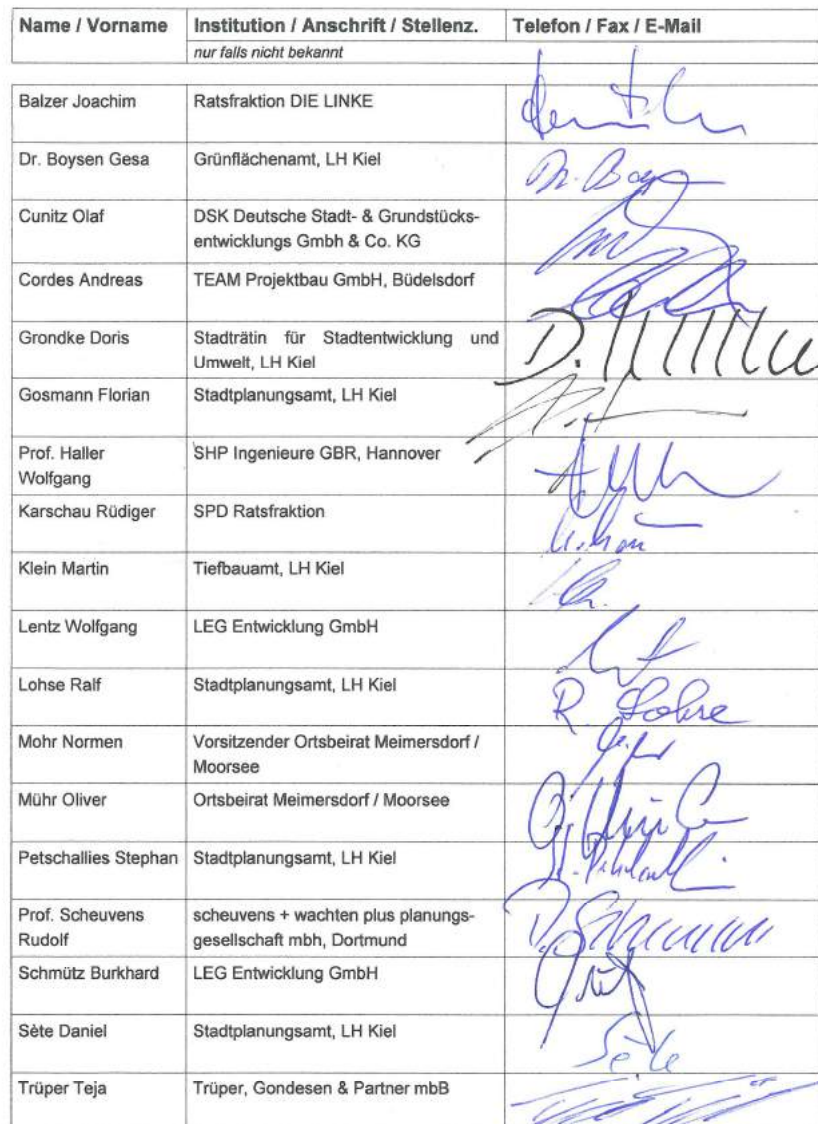 Name / Vorname Institution / Anschrift / Stellenz. Telefon / Fax / E-Mail
nur falls nicht bekannt
Balzer Joachim Ratsfraktion DIE LINKE
Dr. Boysen Gesa Grünflächenamt, LH Kiel Dr. Boy
Cunitz Olaf DSK Deutsche Stadt- & Grundstücks-
entwicklungs Gmbh & Co. KG
Cordes Andreas TEAM Projektbau GmbH, Büdelsdorf
Grondke Doris Stadträtin für Stadtentwicklung und D.
Umwelt, LH Kiel
Gosmann Florian Stadtplanungsamt, LH Kiel
Prof. Haller SHP Ingenieure GBR, Hannover
Wolfgang
Karschau Rüdiger SPD Ratsfraktion
Klein Martin Tiefbauamt, LH Kiel
Lentz Wolfgang LEG Entwicklung GmbH
Lohse Ralf Stadtplanungsamt, LH Kiel R. Lohse
Mohr Normen Vorsitzender Ortsbeirat Meimersdorf /
Moorsee
Mühr Oliver Ortsbeirat Meimersdorf / Moorsee
Petschallies Stephan Stadtplanungsamt, LH Kiel
Prof. Scheuvens scheuvens + wachten plus planungs-
Rudolf gesellschaft mbh, Dortmund
Schmütz Burkhard LEG Entwicklung GmbH
Sète Daniel Stadtplanungsamt, LH Kiel Sète
Trüper Teja Trüper, Gondesen & Partner mbB